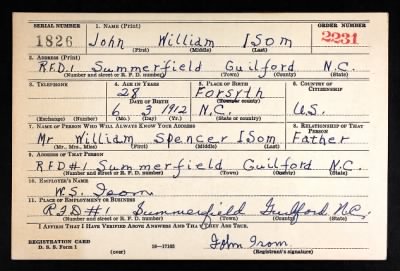 SERIAL NUMBER 1. NAME (Print) ORDER NUMBER
1826 John William Isom 2231
(First) (Middle) (Last)
2. ADDRESS (Print)
R.F.D.1 Summerfield Guilford N.C.
(Number and street or R. F. D. number) (Town) (County) (State)
3. TELEPHONE 4. AGE IN YEARS 5. PLACE OF BIRTH 6. COUNTRY OF CITIZENSHIP
28 Forsyth
DATE OF BIRTH (Town or county)
6 3 1912 N.C. U.S.
(Exchange) (Number) (Mo.) (Day) (Yr.) (State or country)
7. NAME OF PERSON WHO WILL ALWAYS KNOW YOUR ADDRESS 8. RELATIONSHIP OF THAT PERSON
Mr William Spencer Isom Father
(Mr., Mrs., Miss) (First) (Middle) (Last)
9. ADDRESS OF THAT PERSON
R.F.D#1 Summerfield Guilford N.C.
(Number and street or R. F. D. number) (Town) (County) (State)
10. EMPLOYER'S NAME
W.S. Isom
11. PLACE OF EMPLOYMENT OR BUSINESS
R.F.D#1 Summerfield Guilford N.C.
(Number and street or R. F. D. number) (Town) (County) (State)
I AFFIRM THAT I HAVE VERIFIED ABOVE ANSWERS AND THAT THEY ARE TRUE.
REGISTRATION CARD
D. S. S. Form 1 (over) 16—17105 John Isom
(Registrant's signature)